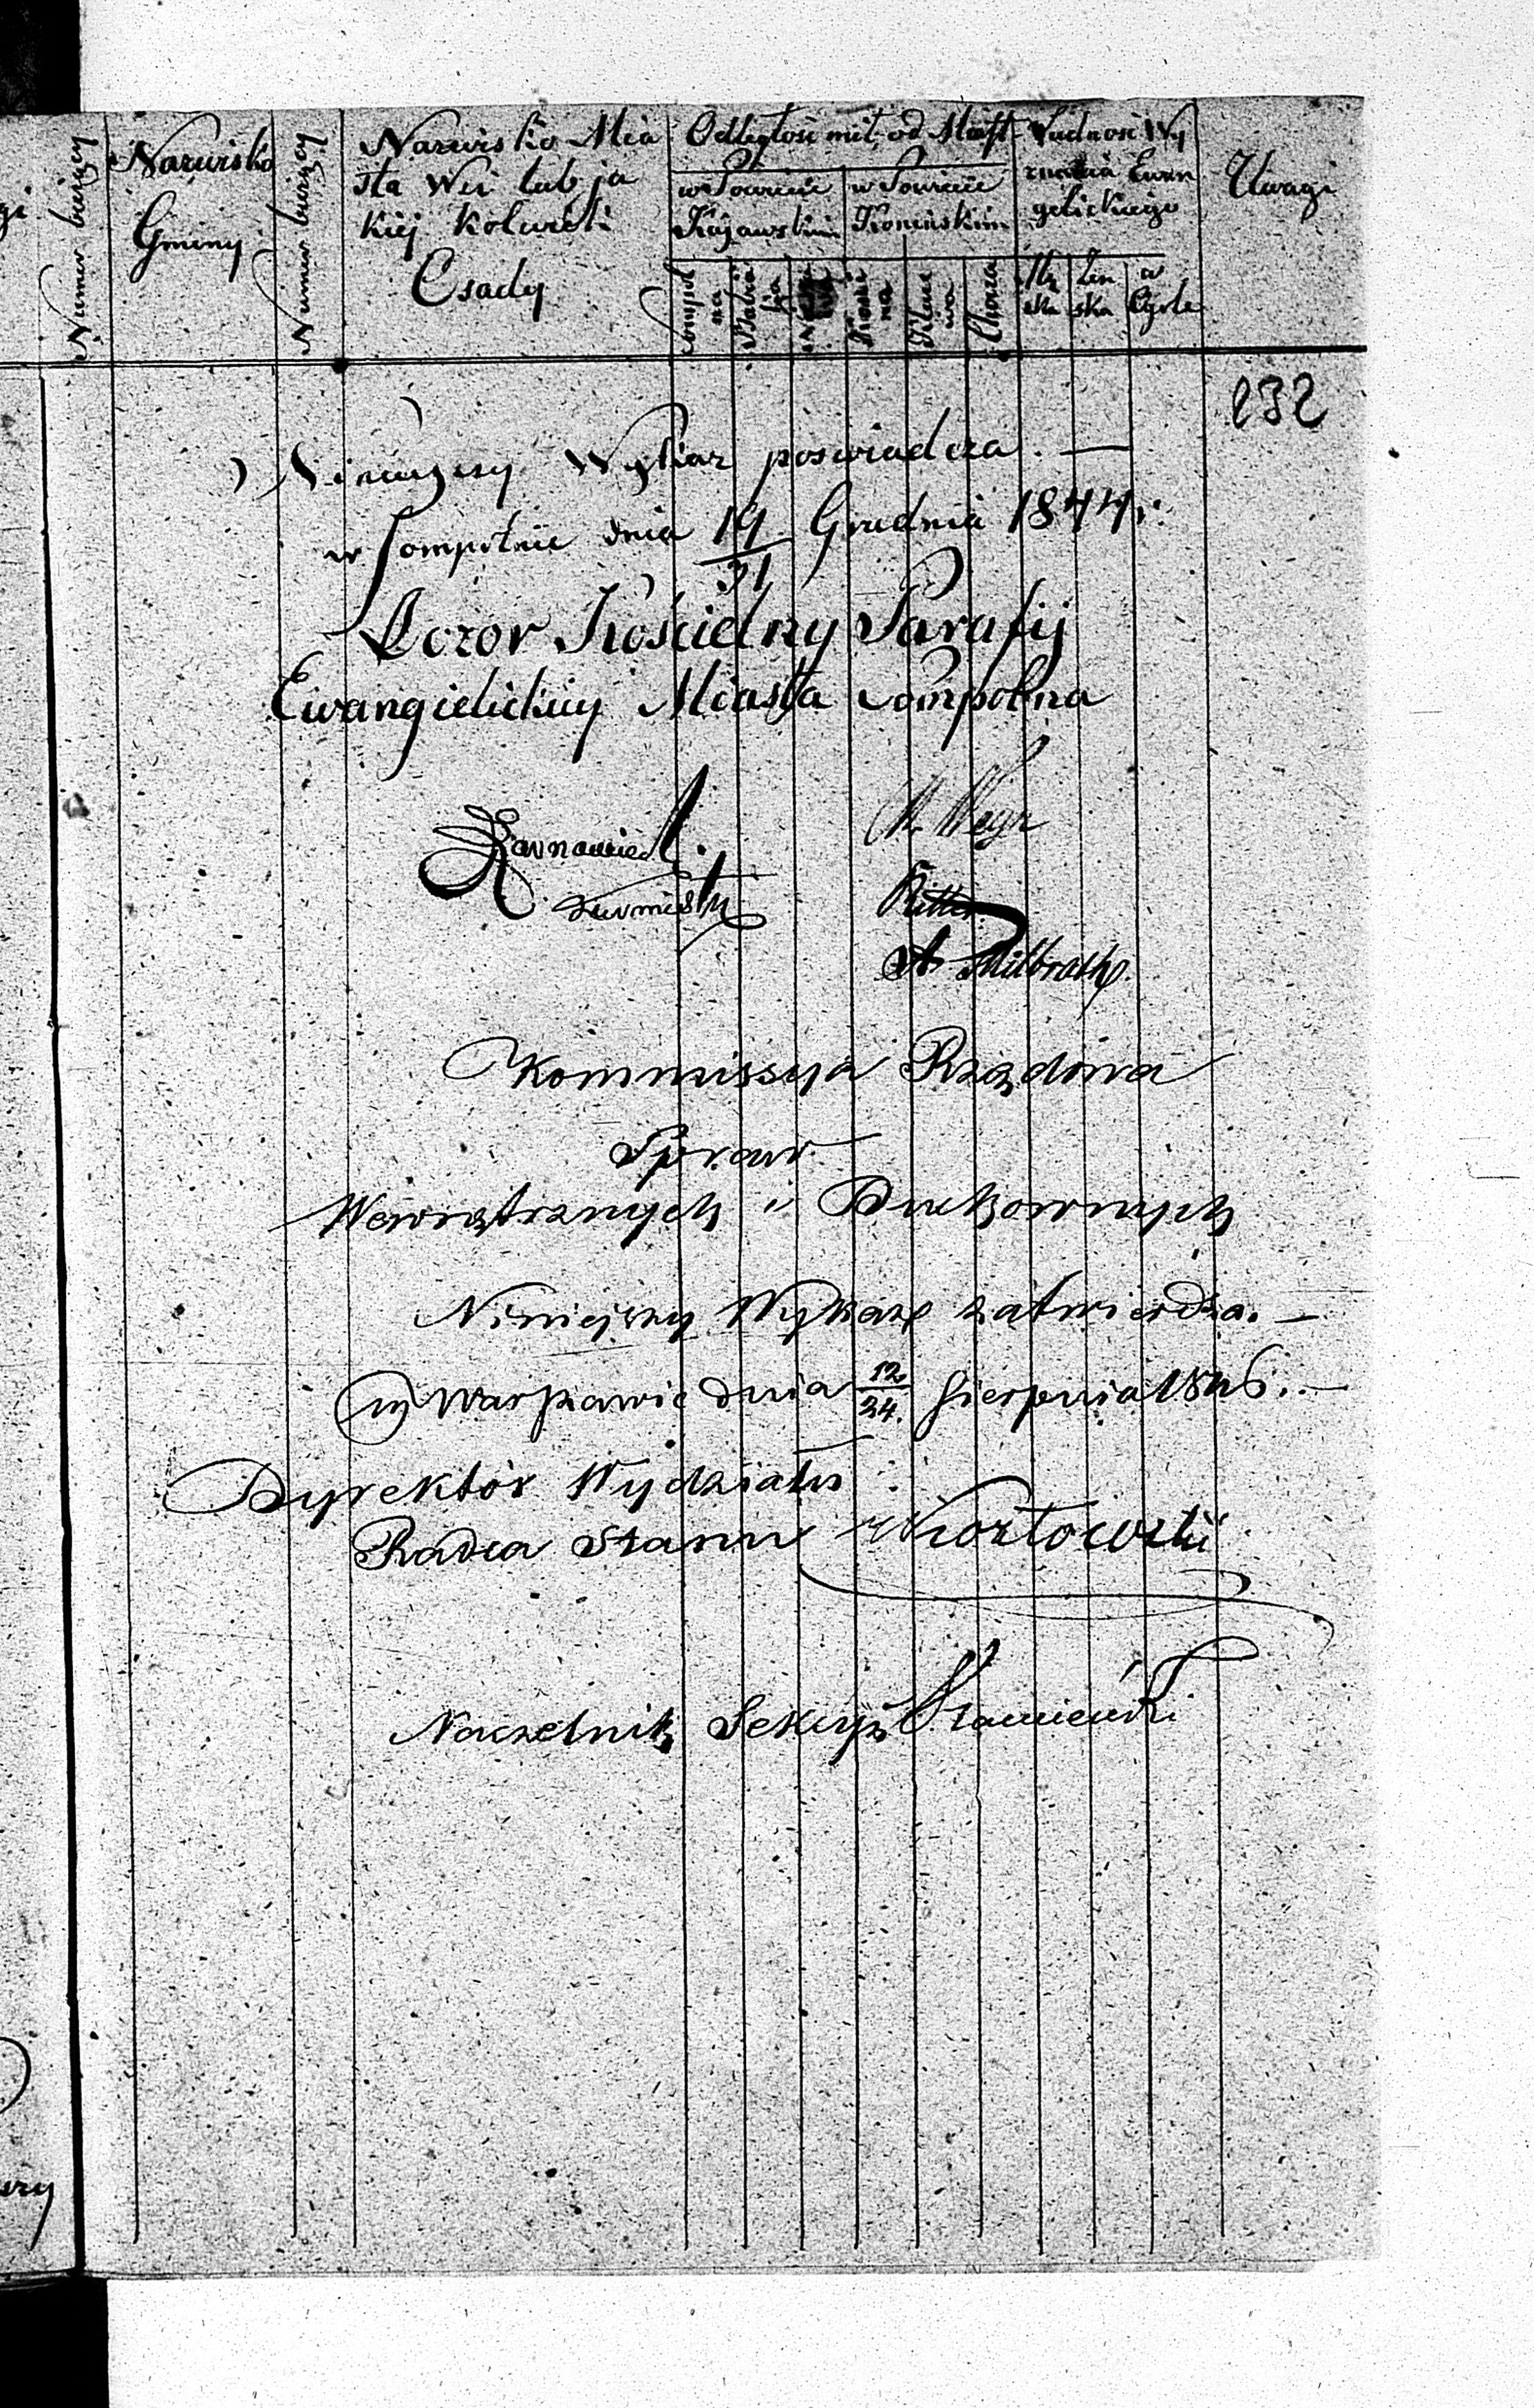 Numer bieżący
Nazwisko
Gminy
Numer bieżący
Nazwisko Mia
sta Wsi lub ja
kiej kolwiek
Osady
Odległość mil od Miast
w Powiecie
Kujawskim
w Powiecie
Konińskim
Sompol
na
Koni
na
Ludność Wy
znania Ewan
gelickiego
Mę
ska
Żeń
ska
w
Ogóle
Uwagi
232
Niniejszy Wykaz poświadcza. —
w Sompolnie dnia 19/31 Grudnia 1844 r:
Dozor Kościelny Parafij
Ewangielickiej Miasta Sompolna
Burmistrz
Ritter
A. Milbrath
Kommissya Rządowa
Spraw
Wewnętrznych i Duchownych
Niniejszy Wykaz zatwierdza. —
w Warszawie dnia 12/24. Sierpnia 1846. —
Dyrektor Wydziału
Radca Stanu Kozłowski
Naczelnik Sekcyi